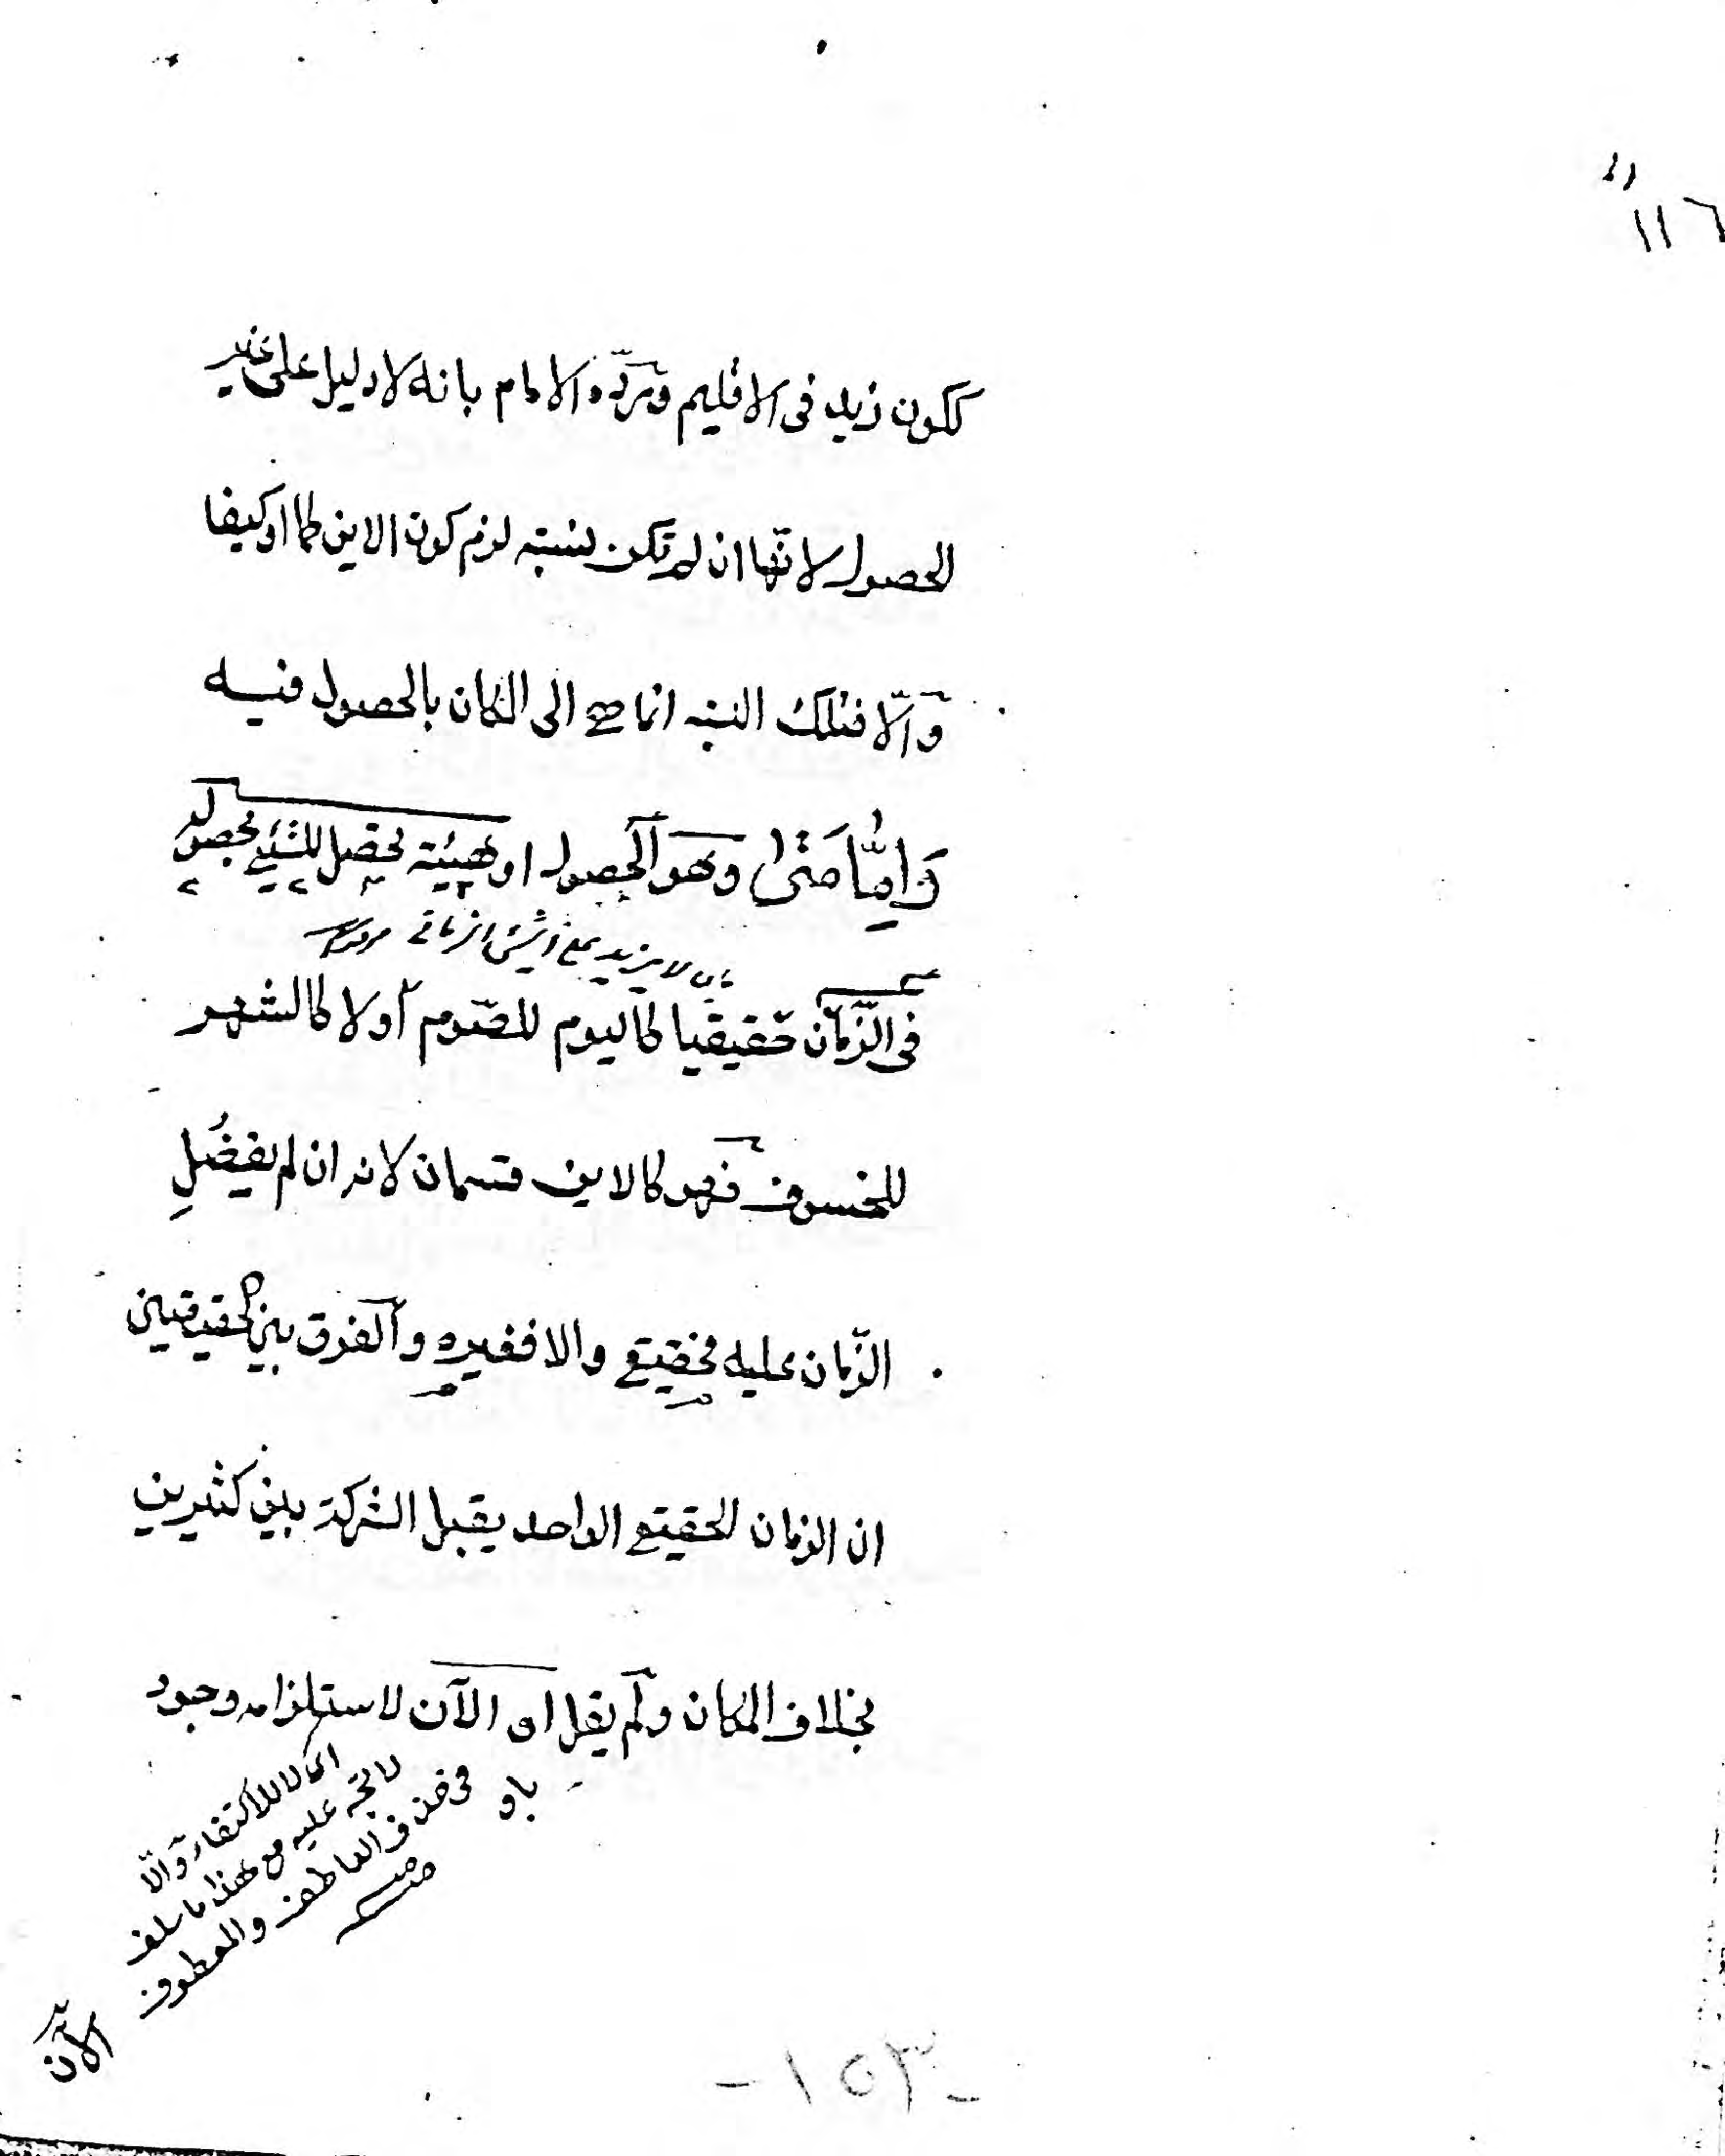 ١١٦
ككون زيد فى الاقليم وردّه الامام بانه لا دليل على غير
الحصول لانها ان لم تكن نسبته لزم كون الاين كما او كيفا
والّا فتلك النسبه انما هى الى المكان بالحصول فيه
وَامّا مَتٰى وهو الحصول او هيئة تحصل للشيئ بحصوله
بان لا يزيد على الشئ الزمانى
فى الزّمان حقيقيا كاليوم للصّوم أولا كالشهر
للخسوف فهو كالاين قسمان لانه ان لم يفضُلِ
الزّمان عليه فحقيقى والا فغيره والفرق بين الحقيقيين
ان الزمان الحقيقى الواحد يقبل الشركة بين كثيرين
بخلاف المكان ولم يقل او الآن لاستلزامه وجود
اى لا للاكتفاء والّا
لا يجه عليه مع هذا ما سلف
فى حذف العاطف والمعطوف
باو
منه
الآن
-١٥٣-